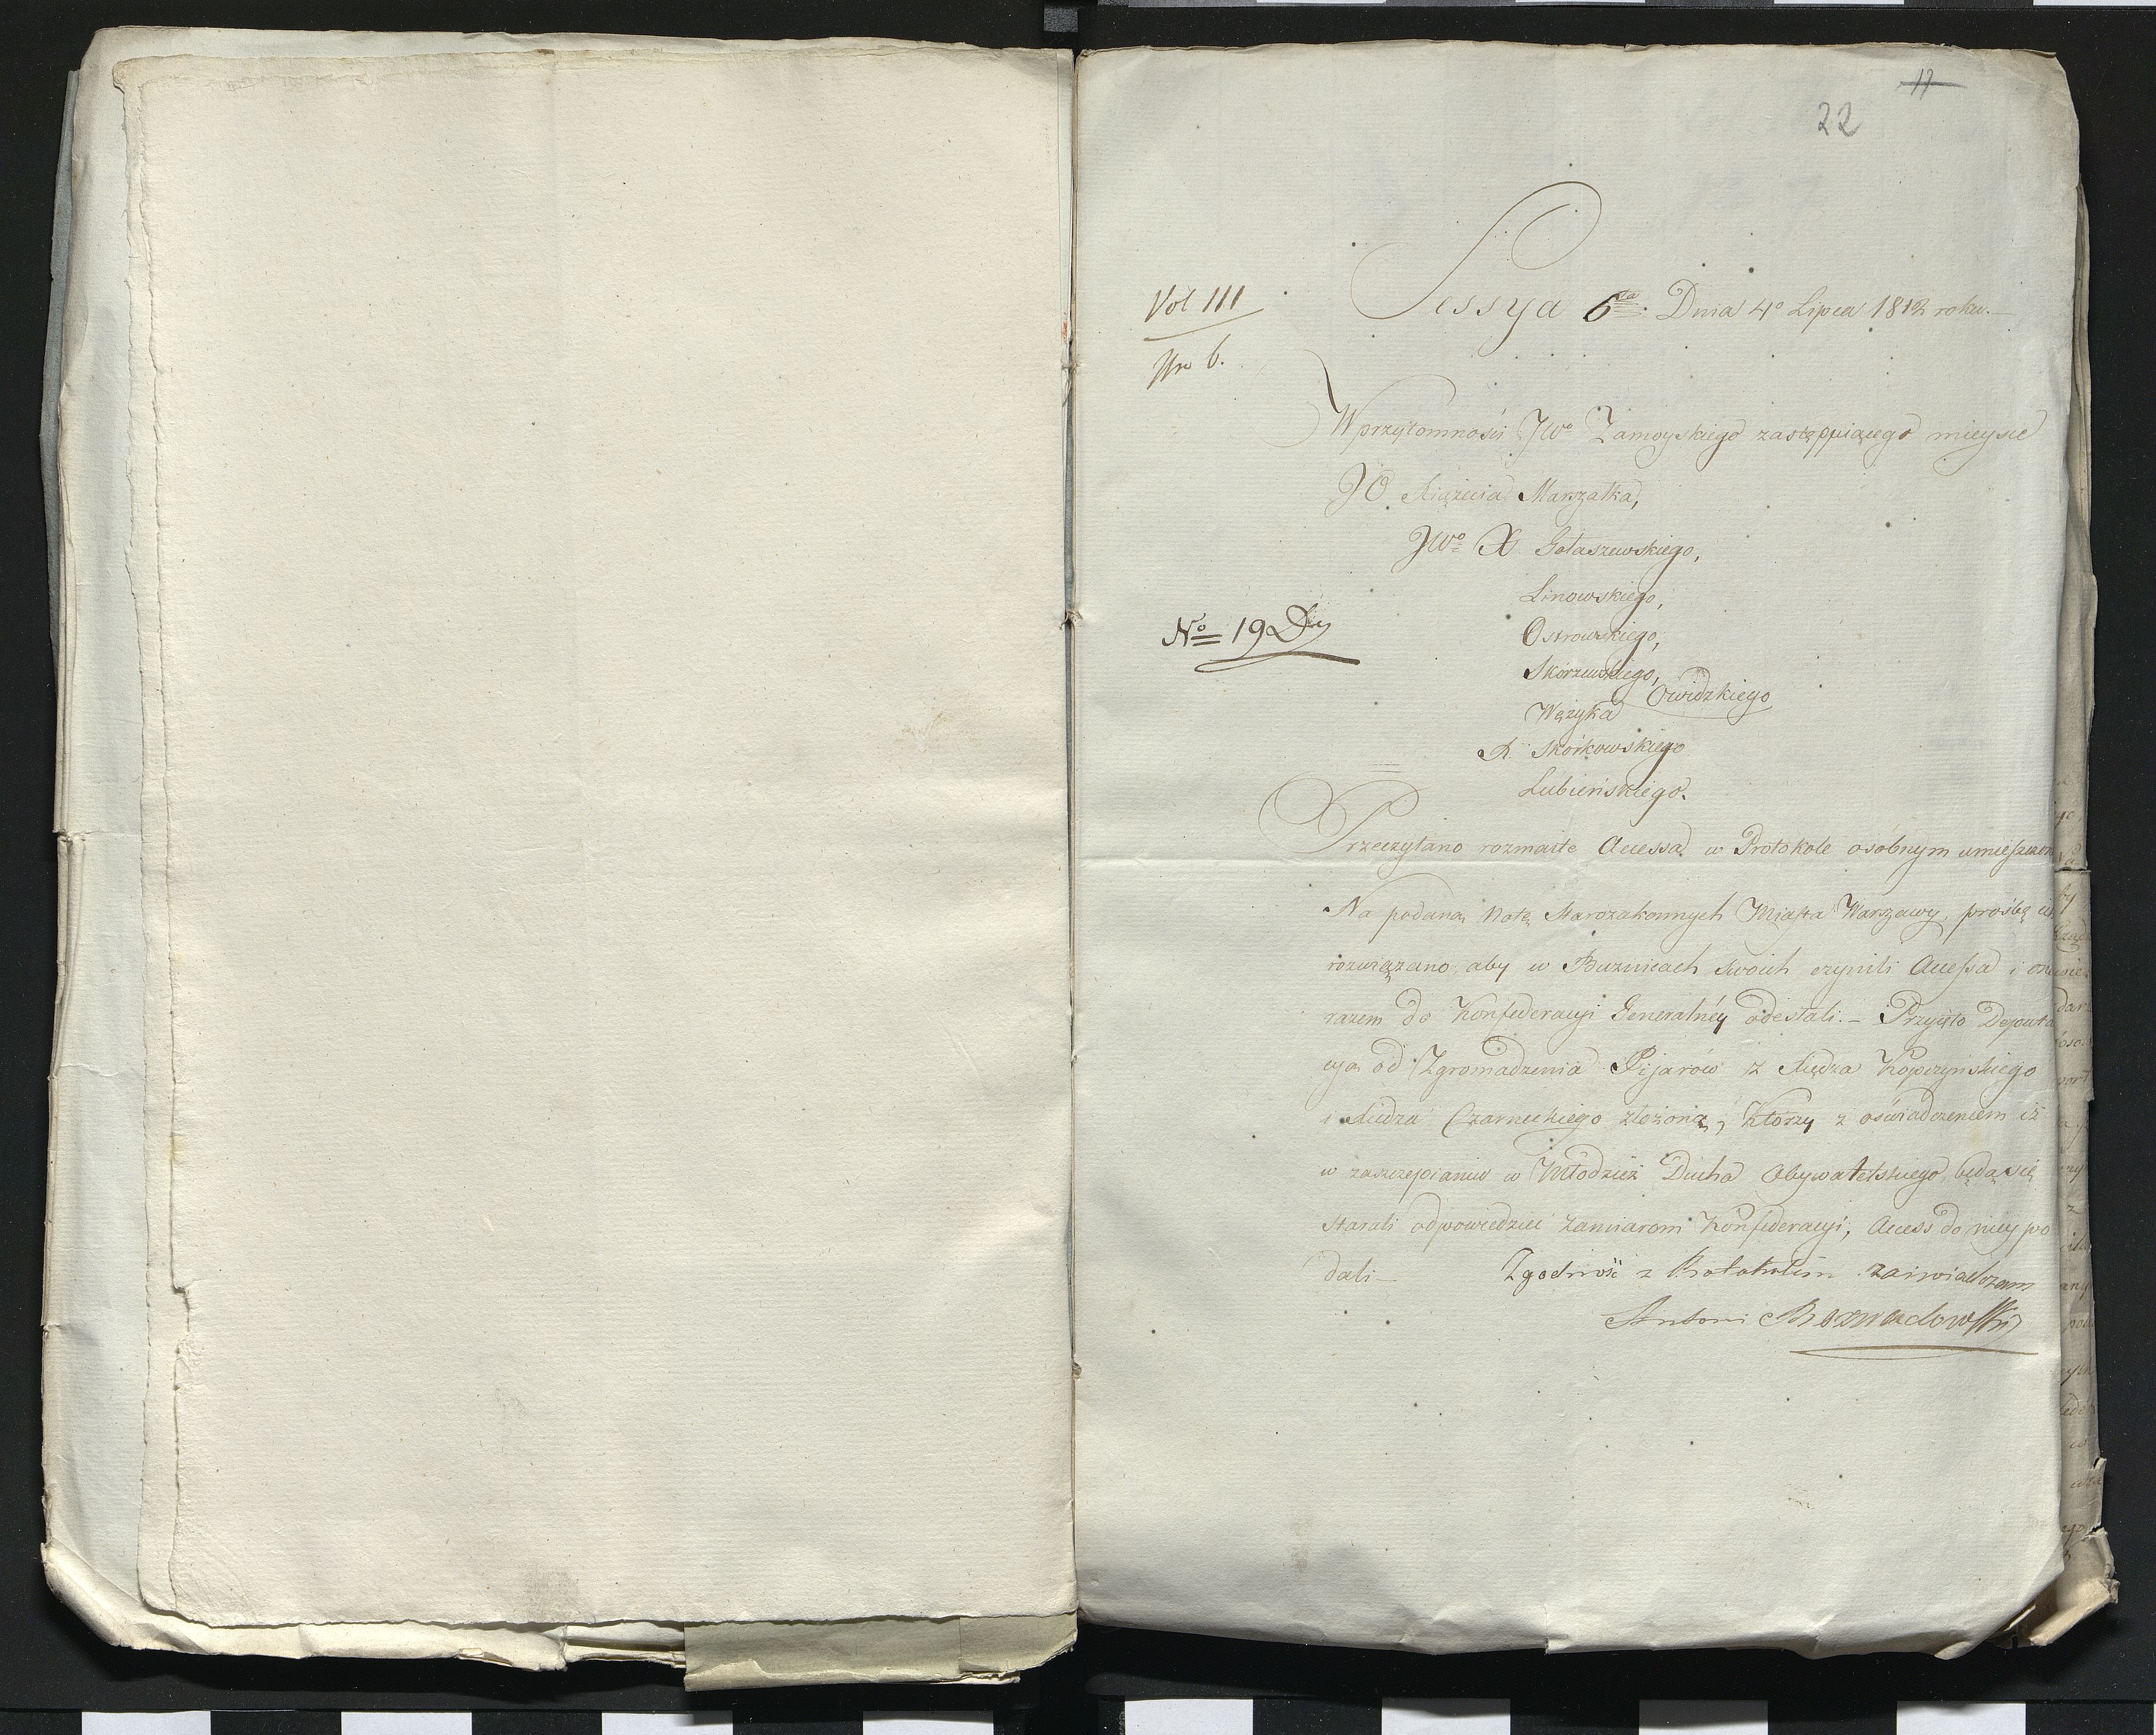 11
22
Vol III
Nro 6.
Sessya 6ta Dnia 4o Lipca 1812 roku.
W przytomności JWo Zamoyskiego zastępuiącego mieysce
JO. Xiążęcia Marszałka,
JWo X. Gołaszewskiego,
Linowskiego,
No 19
Ostrowskiego,
Skórzewskiego,
Owidzkiego
Wężyka
R. Skórkowskiego
Lubieńskiego.
Przeczytano rozmaite Accessa w Protokole osobnym umieszczon
Na podaną Notę Starozakonnych Miasta Warszawy, prośbę
rozwiązano aby w Bużnicach swoich czynili Accessa i one
razem do Konfederacyi Generalnéy odesłali. – Przyięto Deputa
cyą od Zgromadzenia Pijarów z Xiędza Kopczyńskiego
i Xiędza Czarneckiego złożoną, którzy z oświadczeniem iż
w zaszczepianiu w Młodzież Ducha Obywatelskiego będą się
starali odpowiedzieć zamiarom Konfederacyi, Access do niey po
dali –
Zgodność z Protokułem zaświadczam
Antoni Rozwadowski